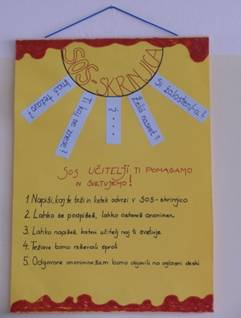 SOS-SKRINJICA
Imaš težavo?
Ti kaj ne znese?
?....
Želiš nasvet?
Si žalosten/a?
SOS UČITELJI TI POMAGAMO
IN SVETUJEMO!
1. Napiši, kaj te teži in listek odvrzi v SOS-skrinjico
2. Lahko se podpišeš, lahko ostaneš anonimen.
3. Lahko napišeš, kateri učitelj naj ti svetuje
4. Težave bomo reševali sproti
5. Odgovore anonimnežem bomo objavili na oglasni deski